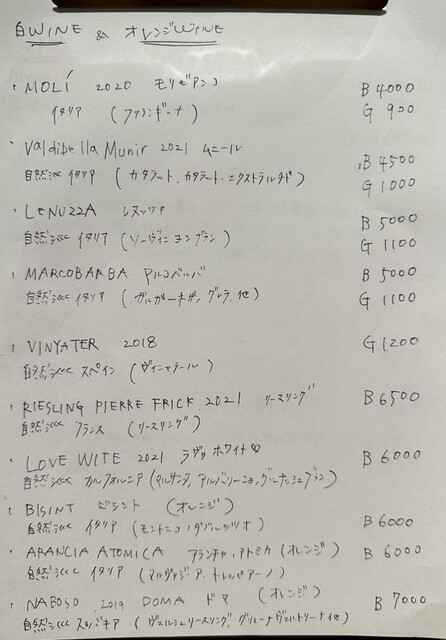 白WINE & オレンジWINE
・MOLÍ 2020 モリビアンコ B 4000
イタリア (ファランギーナ) G 900
Valdibella Munir 2021 ムニール B 4500
自然派 イタリア (カタラット、カタラット・エクストラルチド) G 1000
・LENUZZA レヌッツァ B 5000
自然派 イタリア (ソーヴィニヨンブラン) G 1100
・MARCOBARBA マルコバルバ B 5000
自然派 イタリア (ガルガーネガ, グレラ, 他) G 1100
・VINYATER 2018 G 1200
自然派 スペイン (ヴィニャテール)
・RIESLING PIERRE FRICK 2021 リースリング B 6500
自然派 フランス (リースリング)
・LOVE WITE 2021 ラヴホワイト♡ B 6000
自然派 カルフォルニア (マルサンヌ, アルバリーニョ, グルナッシュブラン)
・BISINT ビシント (オレンジ)
自然派 イタリア (モントニコ・グァルダヴァッレ) B 6000
・ARANCIA ATOMICA アランチャ・アトミカ (オレンジ) B 6000
自然派 イタリア (マルヴァジーア. トレッビアーノ)
・NABOSO 2019 DOMA ドマ (オレンジ) B 7000
自然派 スロバキア (ヴェルシュリースリング, グリューナヴェルトリーナ他)